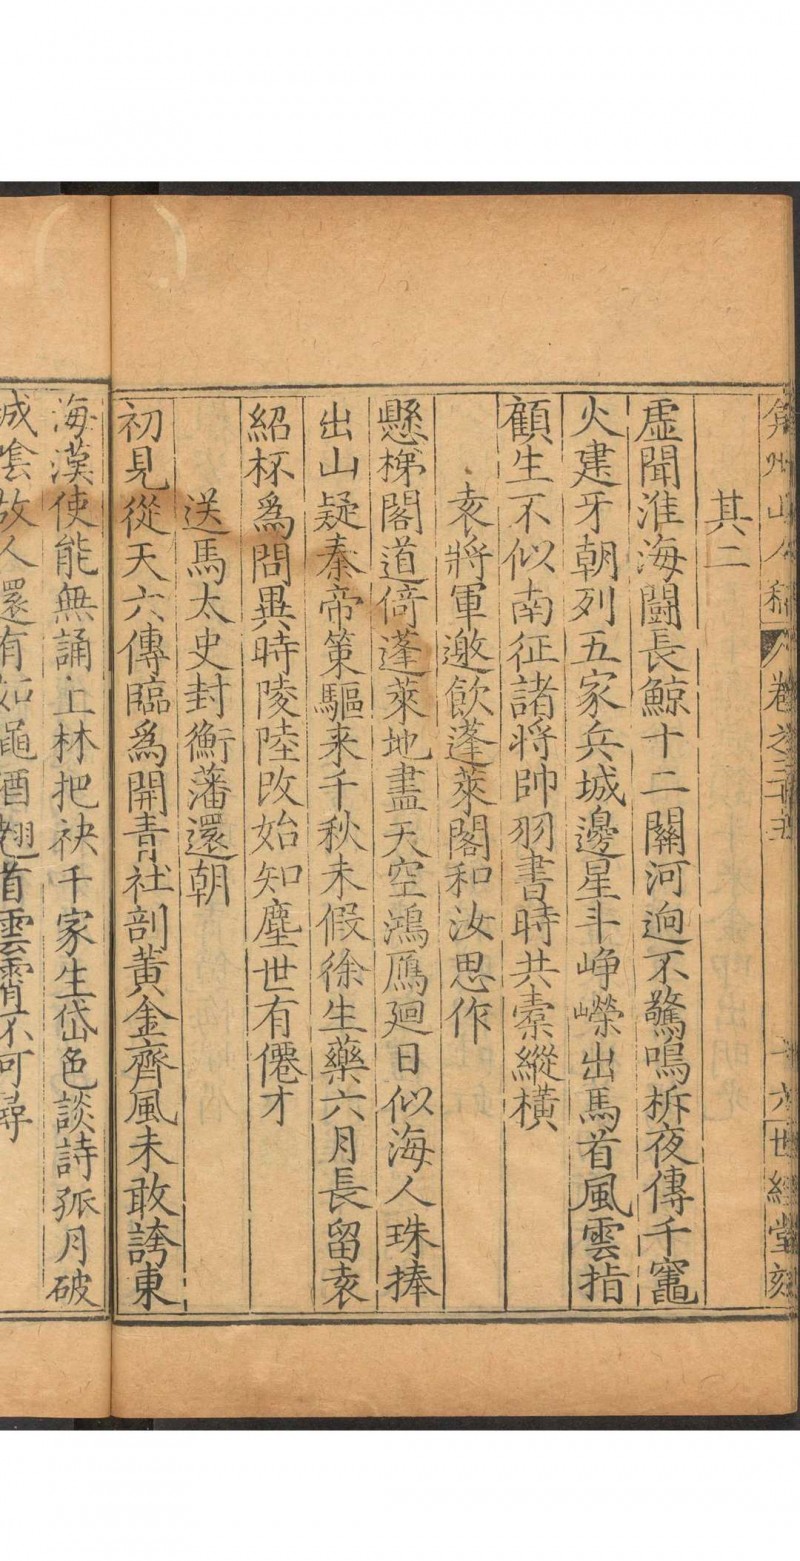 弇州山人稿 卷之三十五 十六 世經堂刻
其二
虛聞淮海鬬長鯨十二關河迥不驚鳴柝夜傳千竈
火建牙朝列五家兵城邊星斗崢嶸出馬首風雲指
顧生不似南征諸將帥羽書時共橐縱橫
袁將軍邀飲蓬萊閣和汝思作
懸梯閣道倚蓬萊地盡天空鴻鴈廻日似海人珠捧
出山疑秦帝策驅来千秋未假徐生藥六月長留袁
紹杯爲問異時陵陸改始知塵世有僊才
送馬太史封衡藩還朝
初見從天六傳臨爲開青社剖黃金齊風未敢誇東
海漢使能無誦上林把袂千家生岱色談詩孤月破
城隂故人還有如澠酒翹首雲霄不可尋